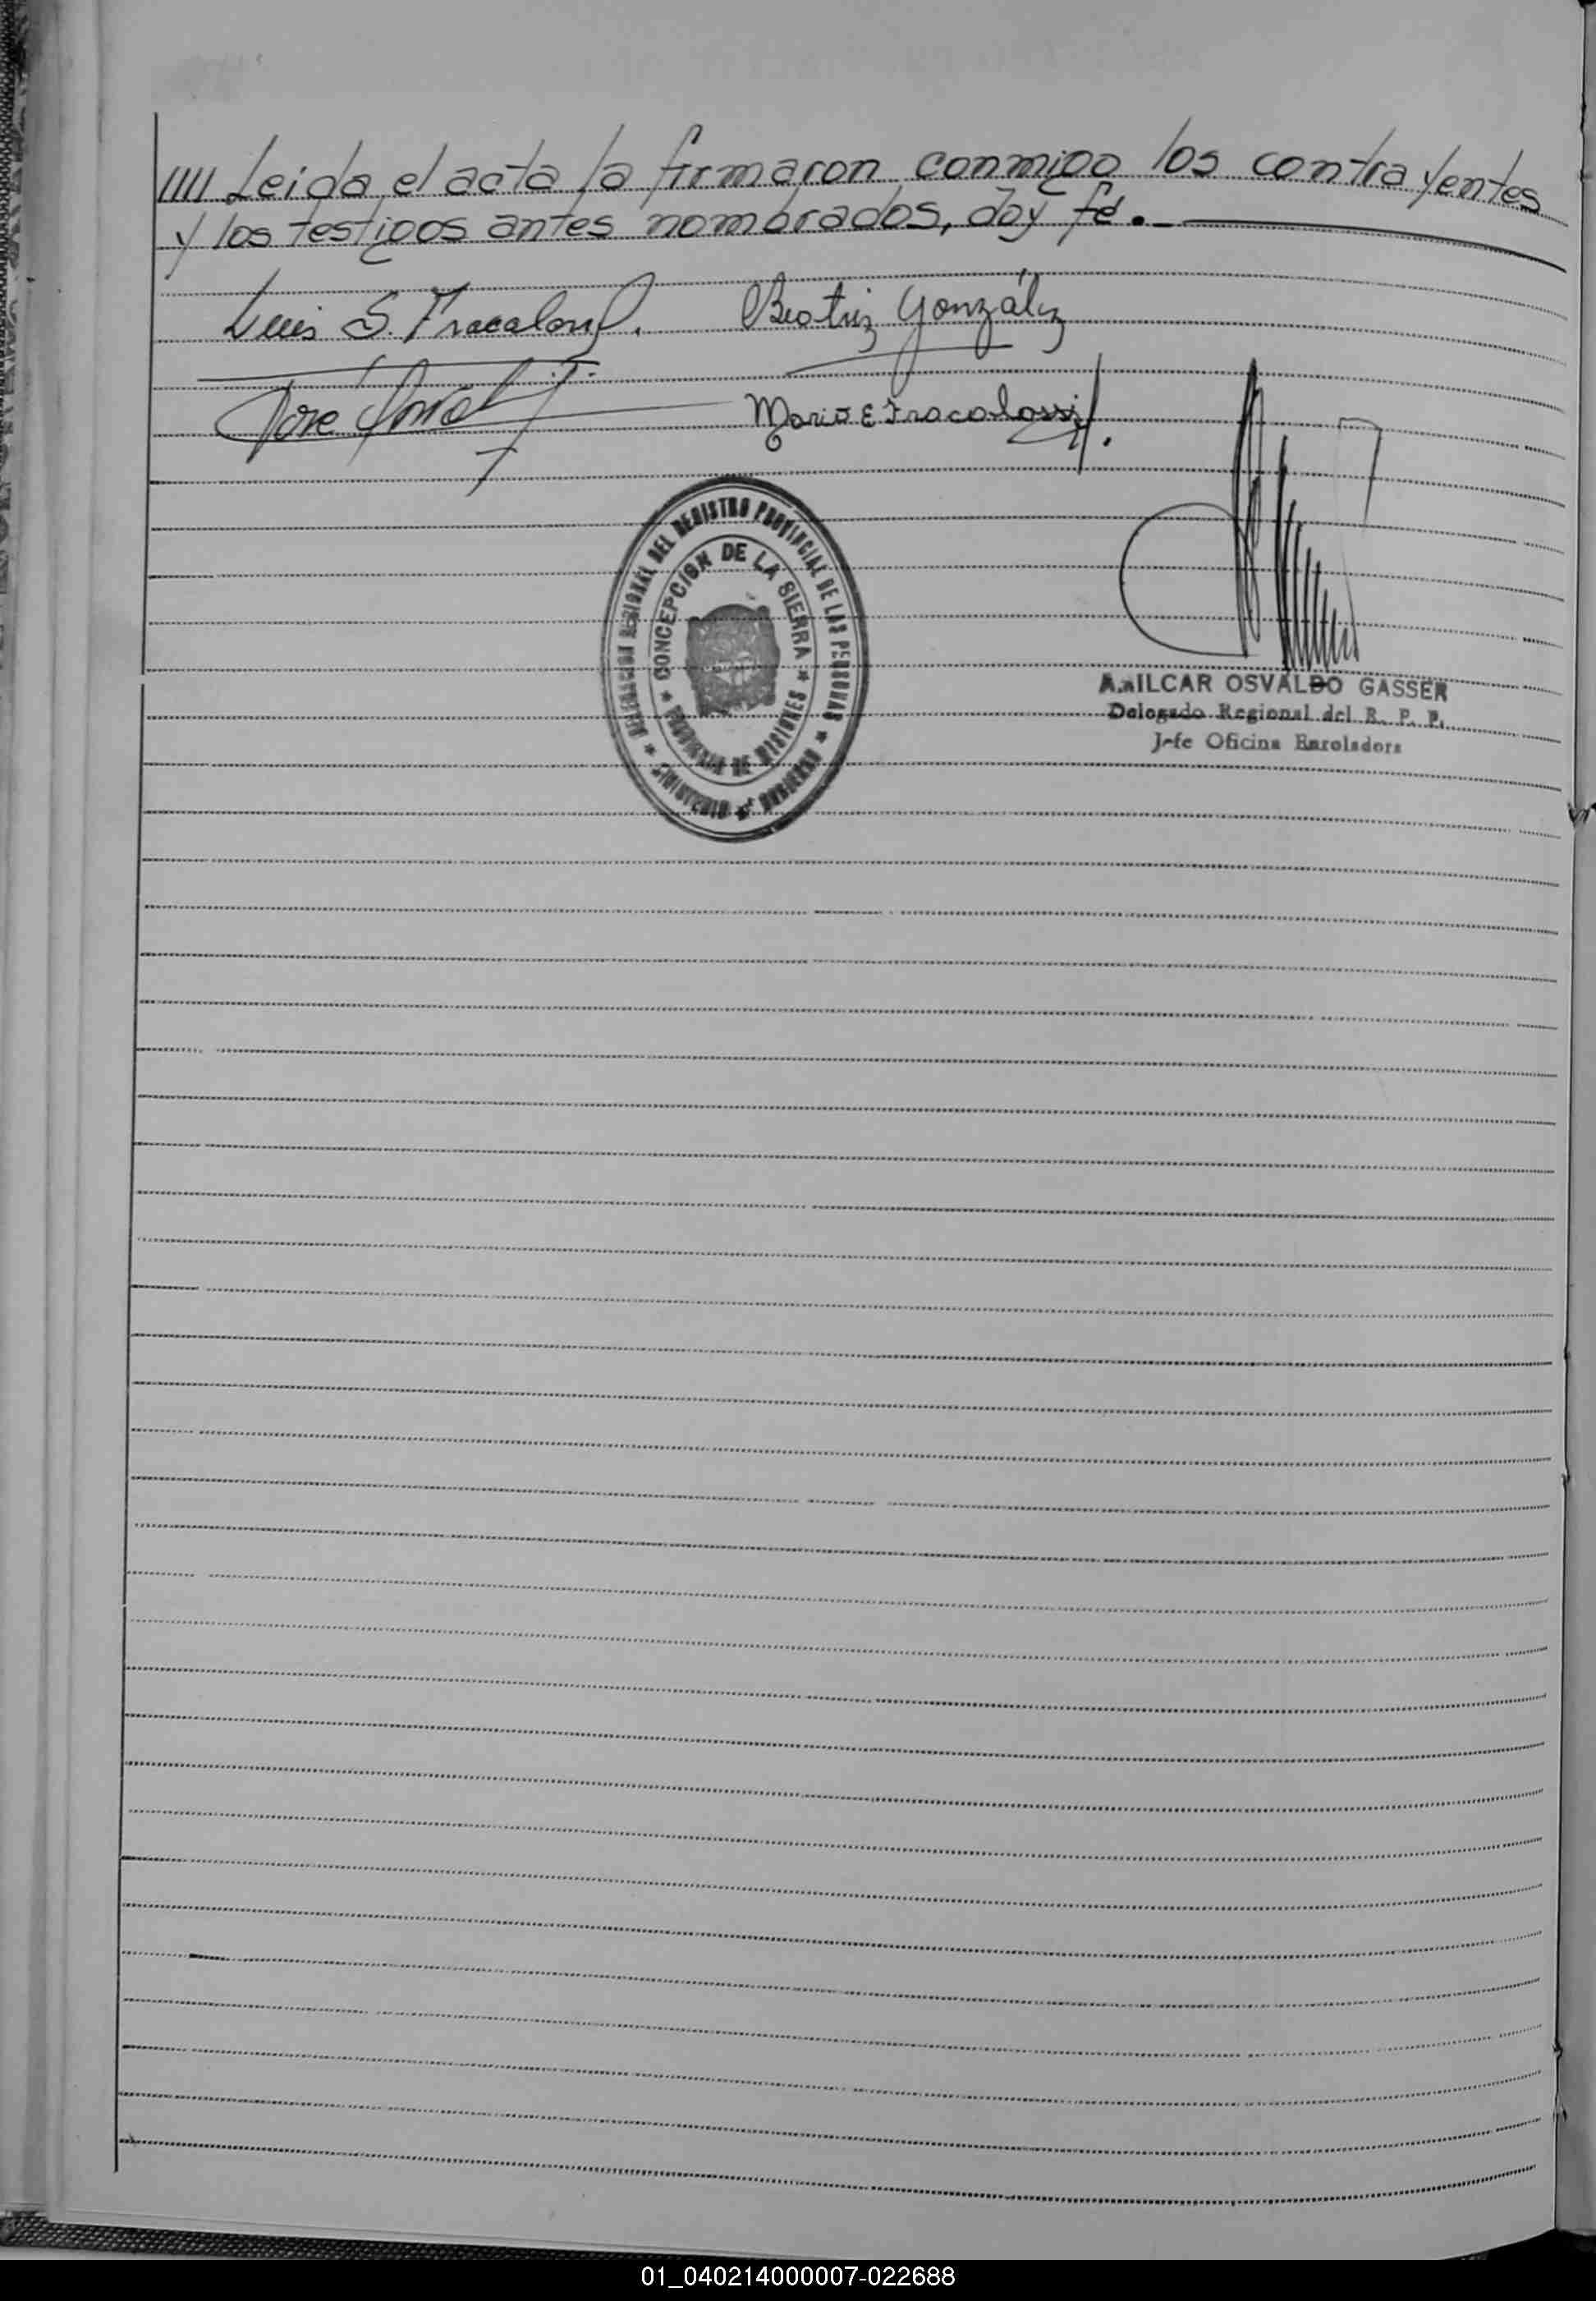 //// Leida el acta la firmaron conmigo los contrayentes
y los testigos antes nombrados, doy fé.
Luis S. Fracalossi. Beatriz González
José Mario E Fracalossi
DELEGACION REGIONAL DEL REGISTRO PROVINCIAL DE LAS PERSONAS
★ MINISTERIO DE GOBIERNO ★
CONCEPCION DE LA SIERRA
★ PROVINCIA DE MISIONES ★
AMILCAR OSVALDO GASSER
Delegado Regional del R. P. P.
Jefe Oficina Enroladora
01_040214000007-022688